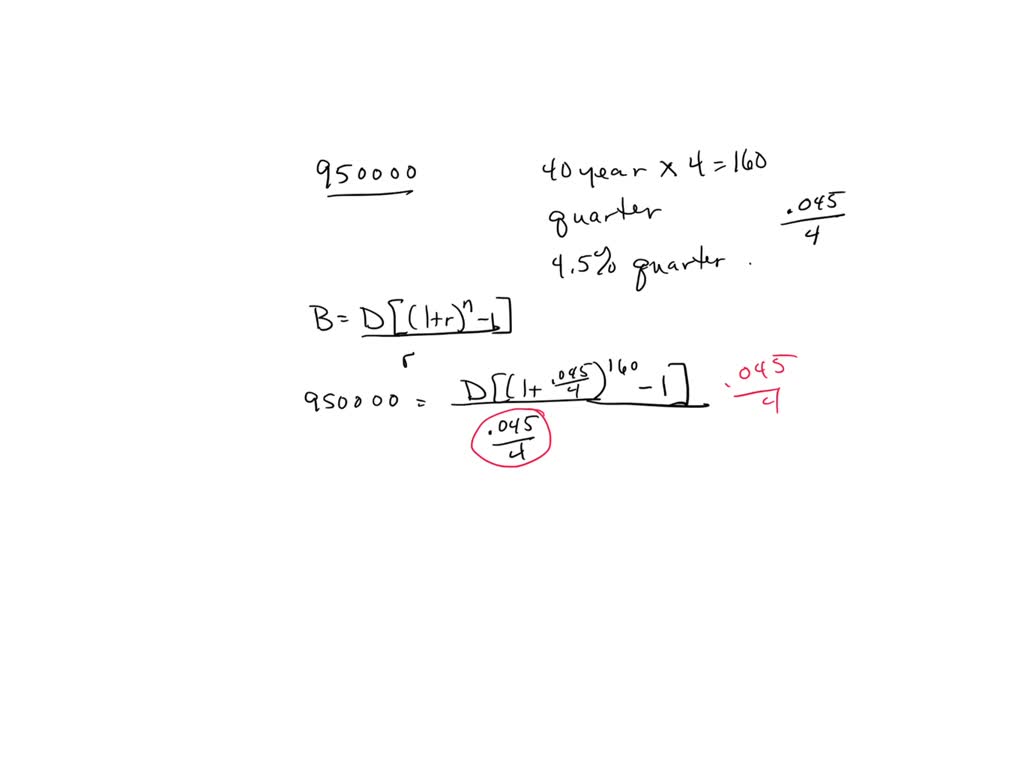 950000
40 year × 4 = 160
quarter
.045/4
4.5% quarter .
B = D[(1+r)^n - 1] / r
950000 = D[(1 + .045/4)^160 - 1] / (.045/4) . .045/4